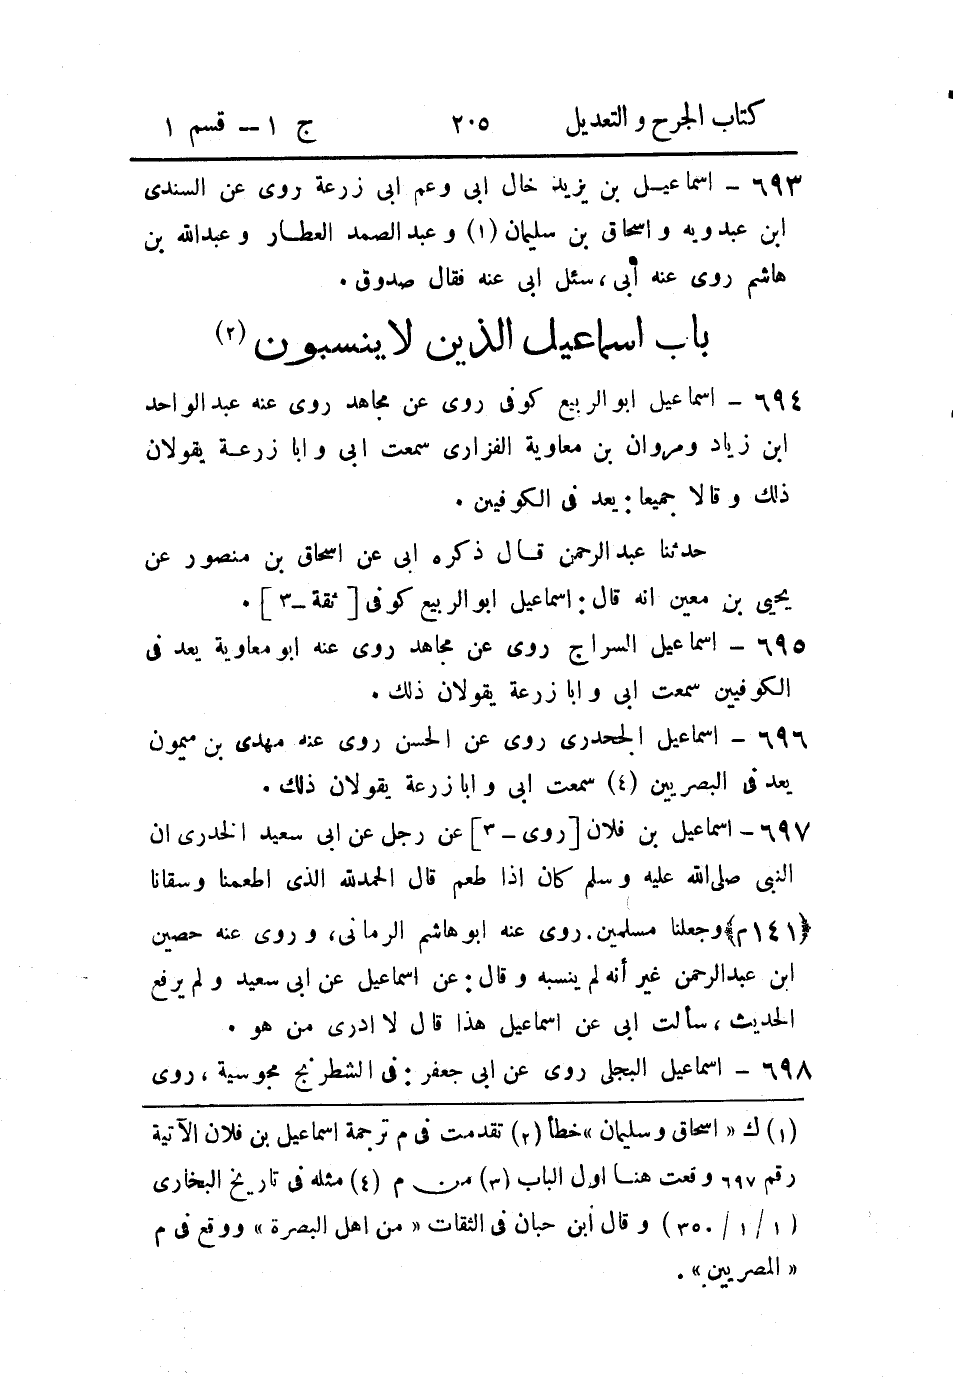 كتاب الجرح و التعديل ٢٠٥ ج ١ – قسم ١
٦٩٣ – اسماعيل بن يزيد خال ابى وعم ابى زرعة روى عن السندى
ابن عبدويه و اسحاق بن سليمان (١) و عبد الصمد العطار و عبدالله بن
هاشم روى عنه أبى، سئل ابى عنه فقال صدوق .
باب اسماعيل الذين لا ينسبون (٢)
٦٩٤ – اسماعيل ابو الربيع كوفى روى عن مجاهد روى عنه عبد الواحد
ابن زياد ومروان بن معاوية الفزارى سمعت ابى و ابا زرعة يقولان
ذلك و قالا جميعا : يعد فى الكوفيين .
حدثنا عبد الرحمن قال ذكره ابى عن اسحاق بن منصور عن
يحيى بن معين انه قال : اسماعيل ابو الربيع كوفى [ ثقة – ٣ ] .
٦٩٥ – اسماعيل السراج روى عن مجاهد روى عنه ابو معاوية يعد فى
الكوفيين سمعت ابى و ابا زرعة يقولان ذلك .
٦٩٦ – اسماعيل الجحدرى روى عن الحسن روى عنه مهدى بن ميمون
يعد فى البصريين (٤) سمعت ابى و ابا زرعة يقولان ذلك .
٦٩٧ – اسماعيل بن فلان [ روى – ٣ ] عن رجل عن ابى سعيد الخدرى ان
النبى صلى الله عليه و سلم كان اذا طعم قال الحمدلله الذى اطعمنا و سقانا
﴿١٤١م﴾ وجعلنا مسلمين . روى عنه ابو هاشم الرمانى، و روى عنه حصين
ابن عبدالرحمن غير أنه لم ينسبه و قال : عن اسماعيل عن ابى سعيد و لم يرفع
الحديث، سألت ابى عن اسماعيل هذا قال لا ادرى من هو .
٦٩٨ – اسماعيل البجلى روى عن ابى جعفر : فى الشطرنج مجوسية ، روى
(١) ك « اسحاق و سليمان » خطأ (٢) تقدمت فى م ترجمة اسماعيل بن فلان الآتية
رقم ٦٩٧ و قعت هنا اول الباب (٣) من م (٤) مثله فى تاريخ البخارى
(١ / ١ / ٣٥٠) و قال أبن حبان فى الثقات « من اهل البصرة » ووقع فى م
« المصريين » .